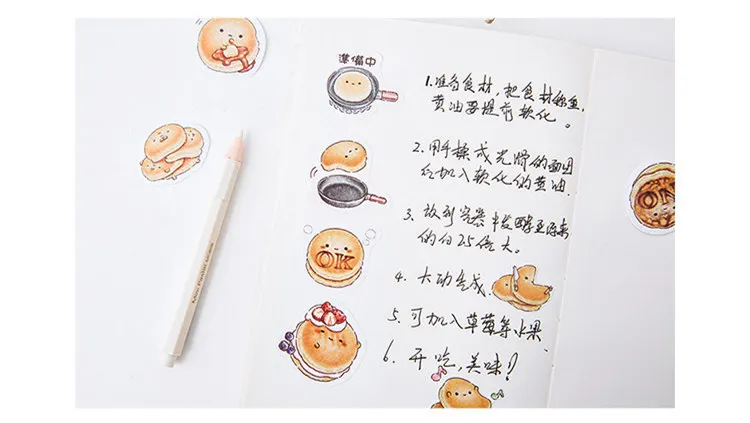 準備中
1.准备食材,把食材称重,
黄油要提前软化。
2.用手揉成光滑的面团
加入软化的黄油.
3.放到容器中发酵至原来
的2.5倍大。
OK
4.大功告成.
5.可加入草莓等水果.
6.开吃,美味!
OK